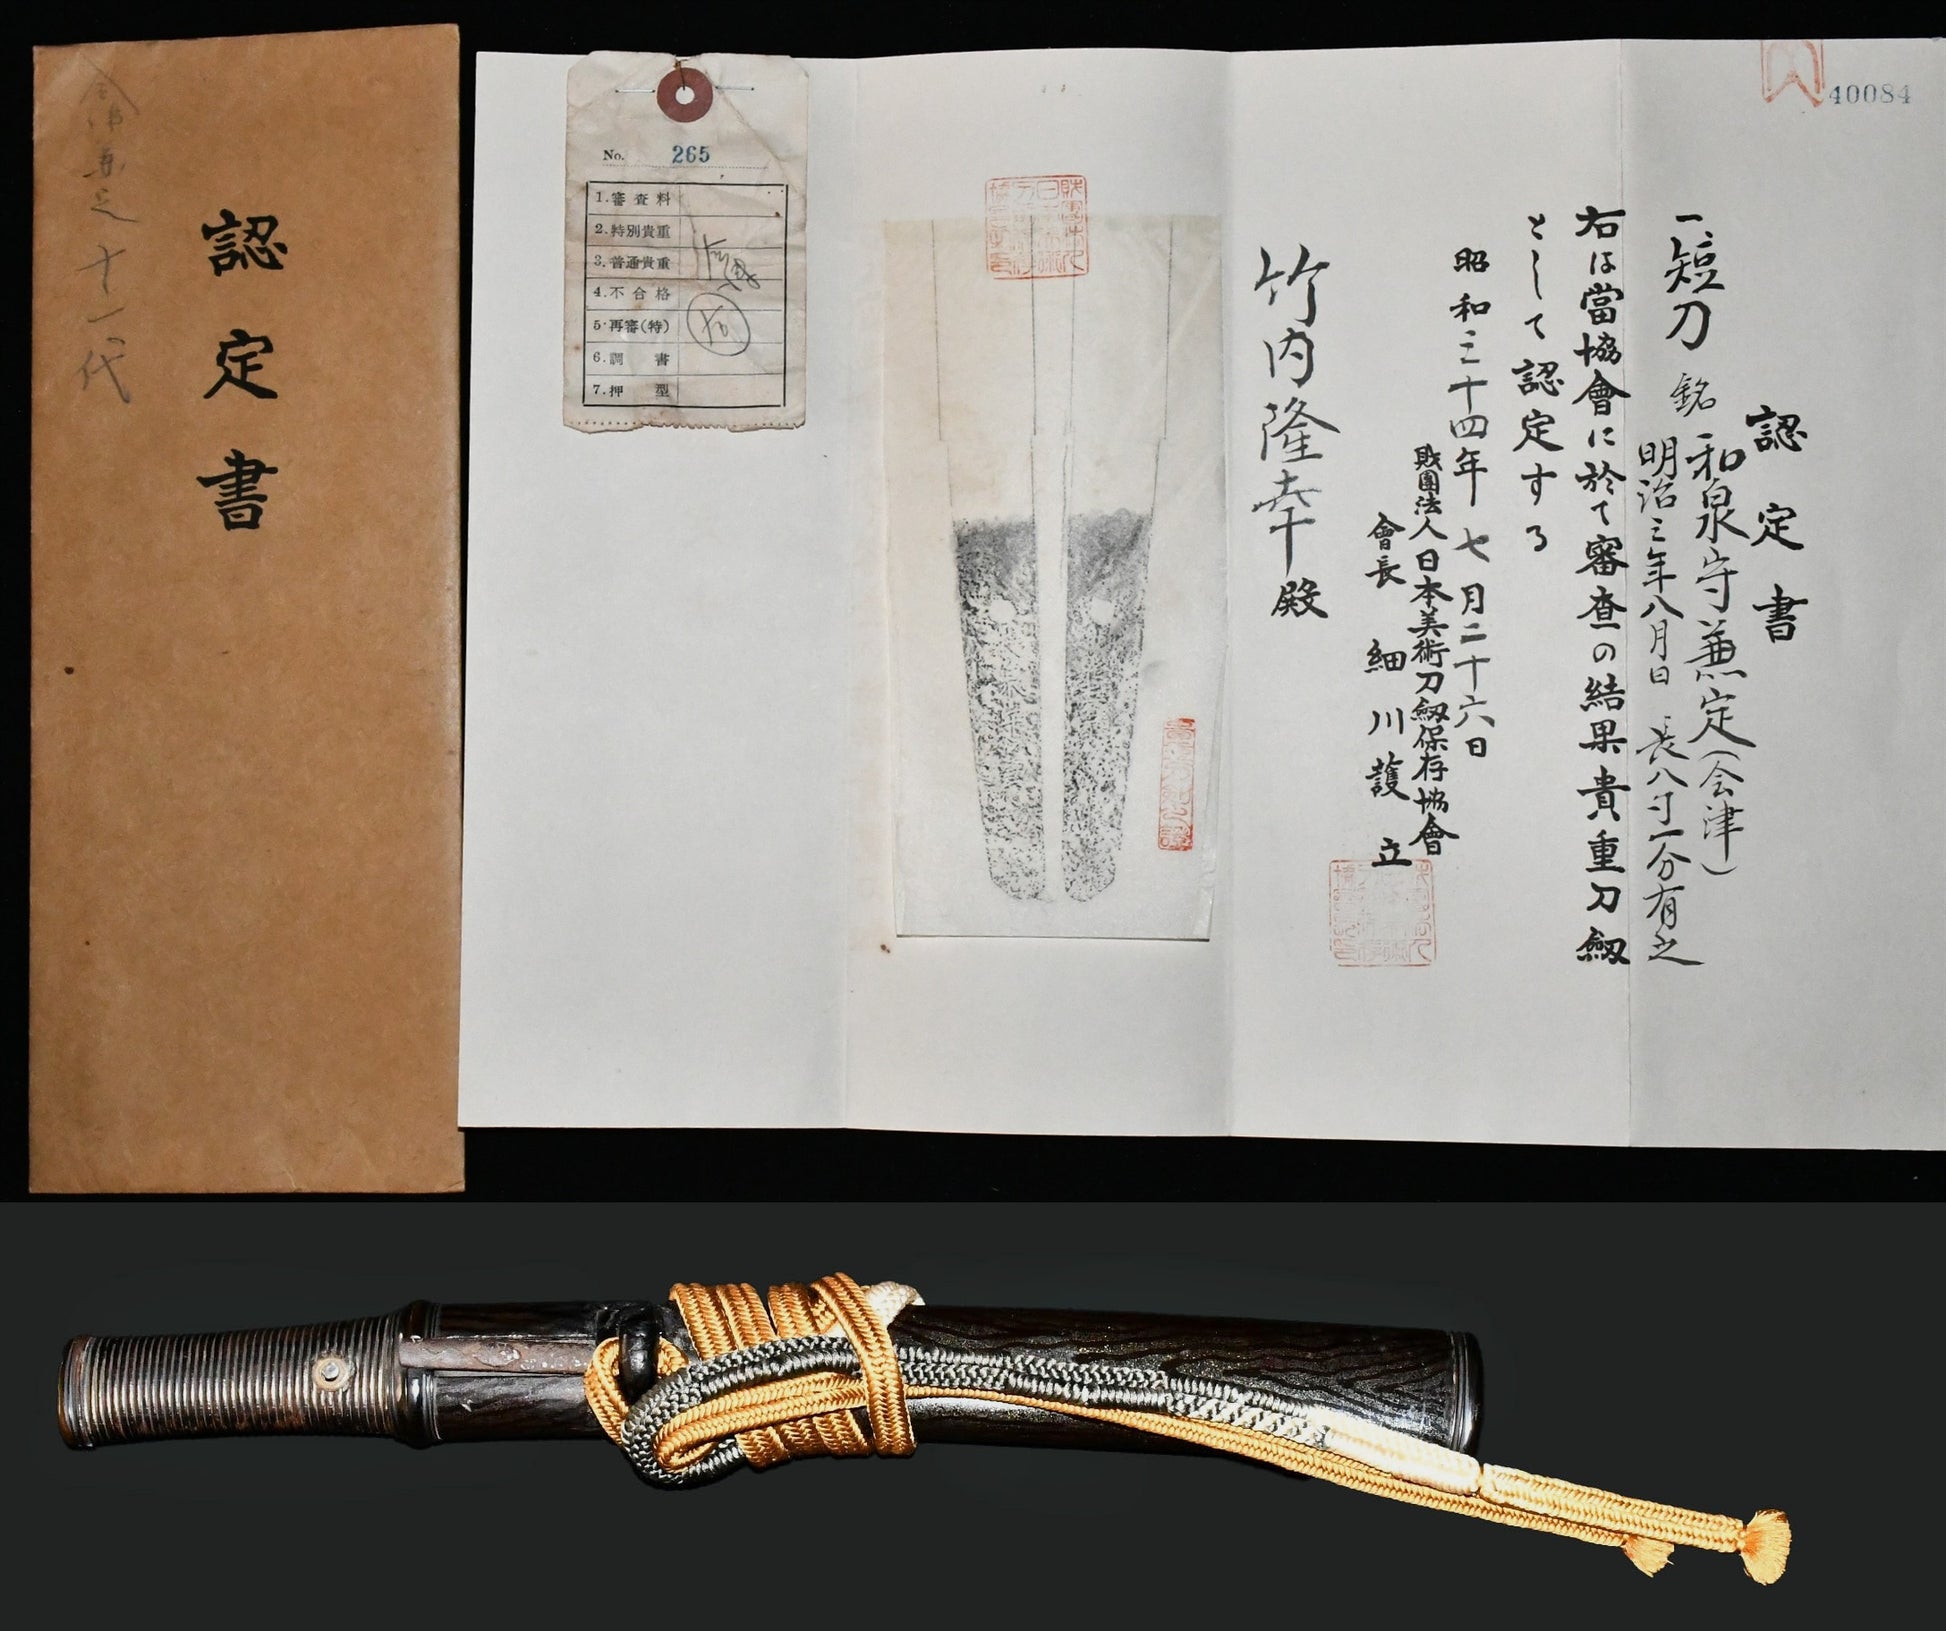 認定書
十一代
No. 265
1.審査料
2.特別貴重
3.普通貴重
4.不合格
5.再審(特)
6.調書
7.押型
40084
認定書
一、短刀 銘 和泉守兼定(会津)
明治三年八月日 長八寸一分有之
右は當協會に於て審査の結果貴重刀劔
として認定する
昭和三十四年七月二十六日
財團法人日本美術刀劔保存協會
會長 細川護立
竹内隆幸殿